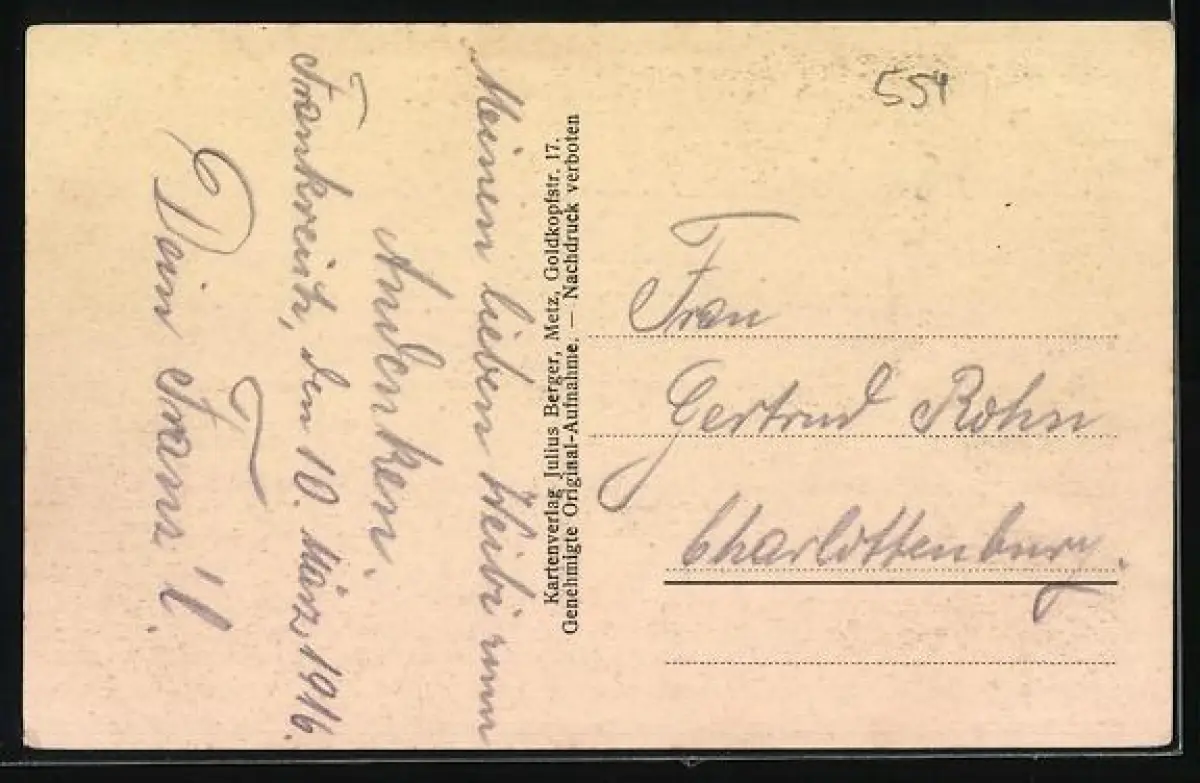 Meinem lieben Weibi zum
Andenken.
Frankreich, den 10. März 1916.
Dein Franz'l.
Kartenverlag Julius Berger, Metz, Goldkopfstr. 17.
Genehmigte Original-Aufnahme. — Nachdruck verboten
554
Frau
Gertrud Rohn
Charlottenburg.